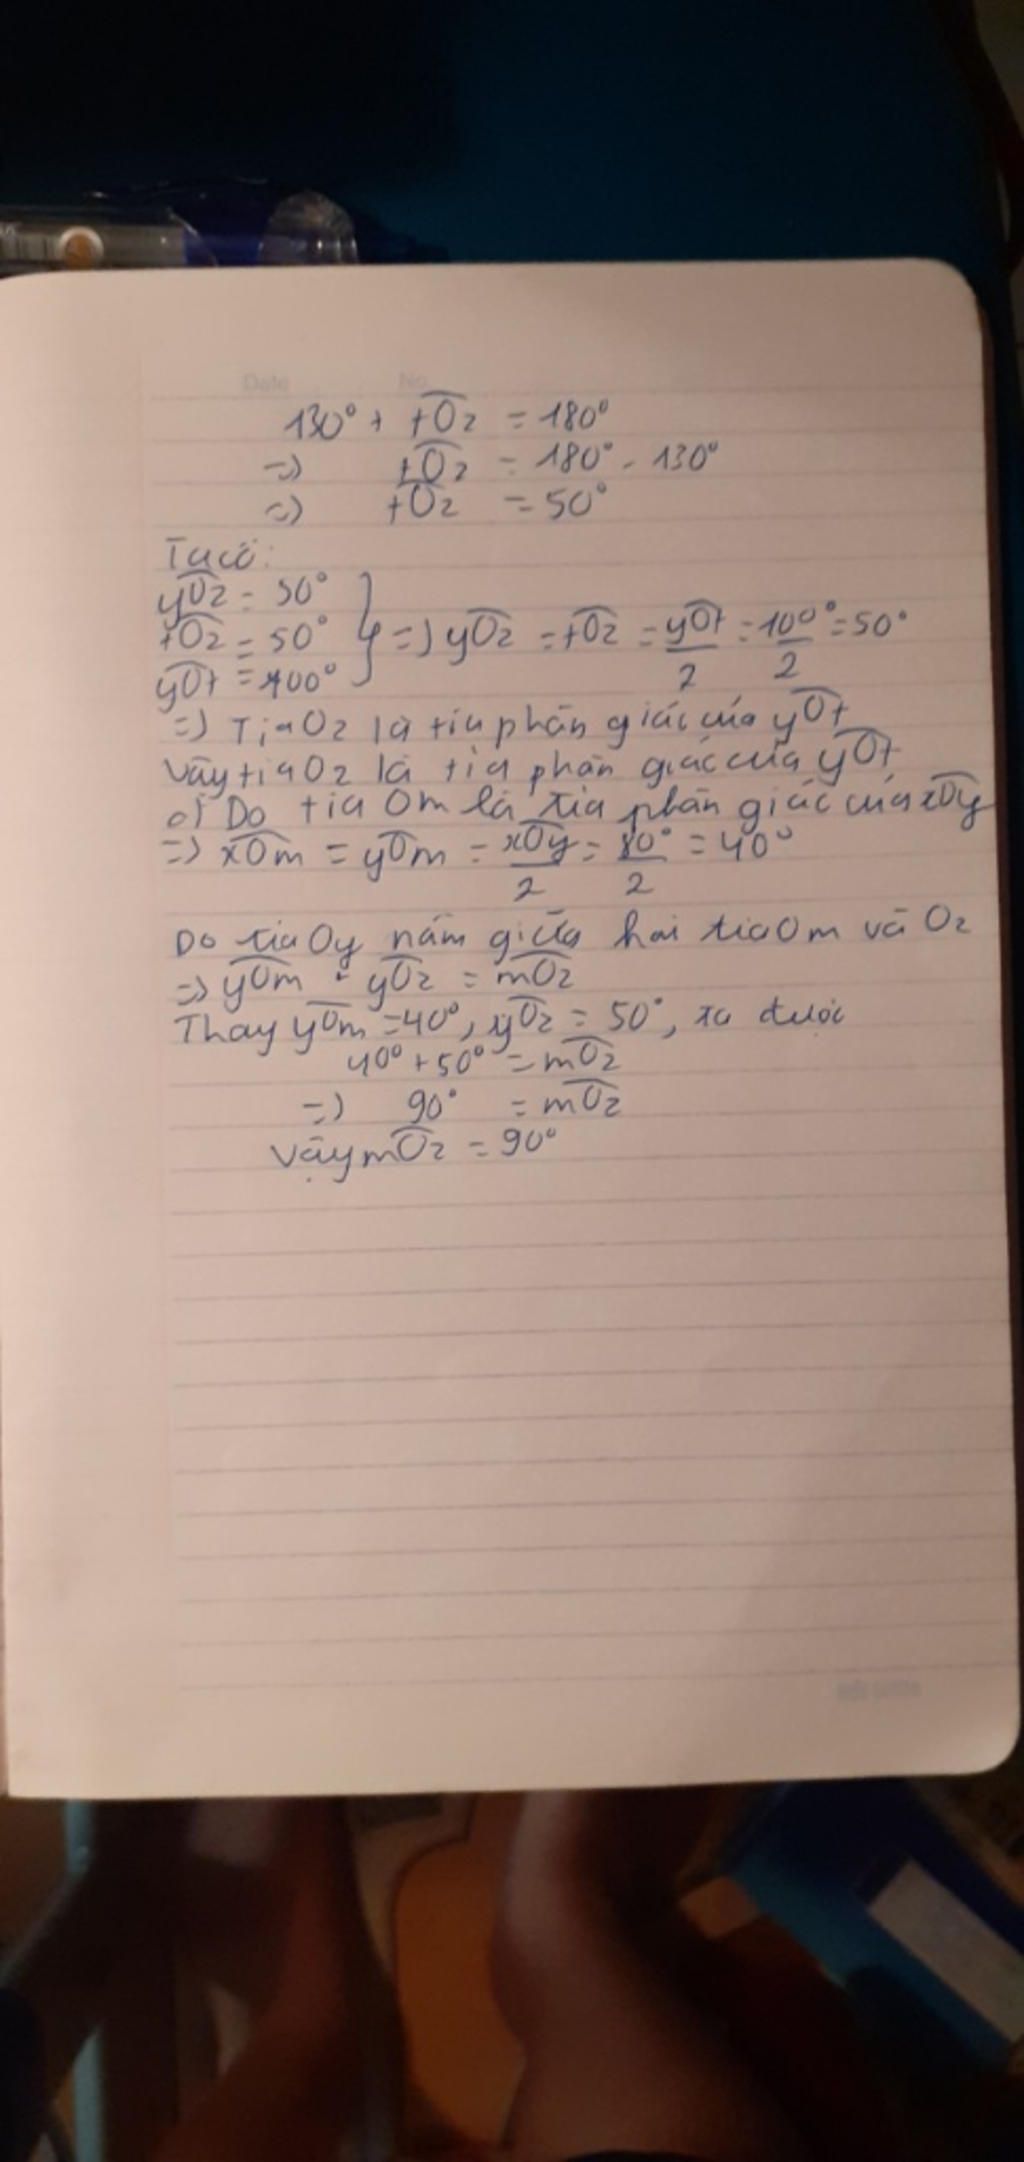 Date No.
130° + tOz = 180°
=> tOz = 180° - 130°
=> tOz = 50°
Ta có:
yOz = 50°
tOz = 50° } => yOz = tOz = yOt/2 = 100°/2 = 50°
yOt = 100°
=> Tia Oz là tia phân giác của yOt
Vậy tia Oz là tia phân giác của yOt
c) Do tia Om là tia phân giác của xOy
=> xOm = yOm = xOy/2 = 80°/2 = 40°
Do tia Oy nằm giữa hai tia Om và Oz
=> yOm + yOz = mOz
Thay yOm = 40°, yOz = 50°, ta được
40° + 50° = mOz
=> 90° = mOz
Vậy mOz = 90°